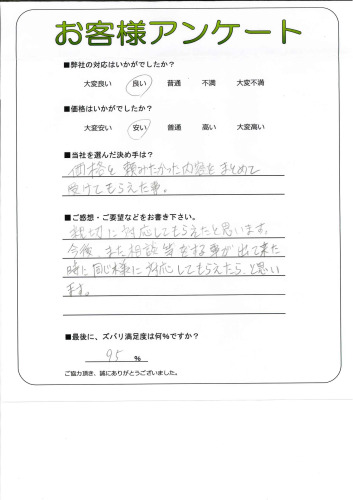 お客様アンケート
■弊社の対応はいかがでしたか？
大変良い 良い 普通 不満 大変不満
■価格はいかがでしたか？
大変安い 安い 普通 高い 大変高い
■当社を選んだ決め手は？
価格と頼みたかった内容をまとめて
受けてもらえた事。
■ご感想・ご要望などをお書き下さい。
親切に対応してもらえたと思います。
今後、また相談等をする事が出て来た
時に同じ様に対応してもらえたら、と思い
ます。
■最後に、ズバリ満足度は何％ですか？
95 %
ご協力頂き、誠にありがとうございました。